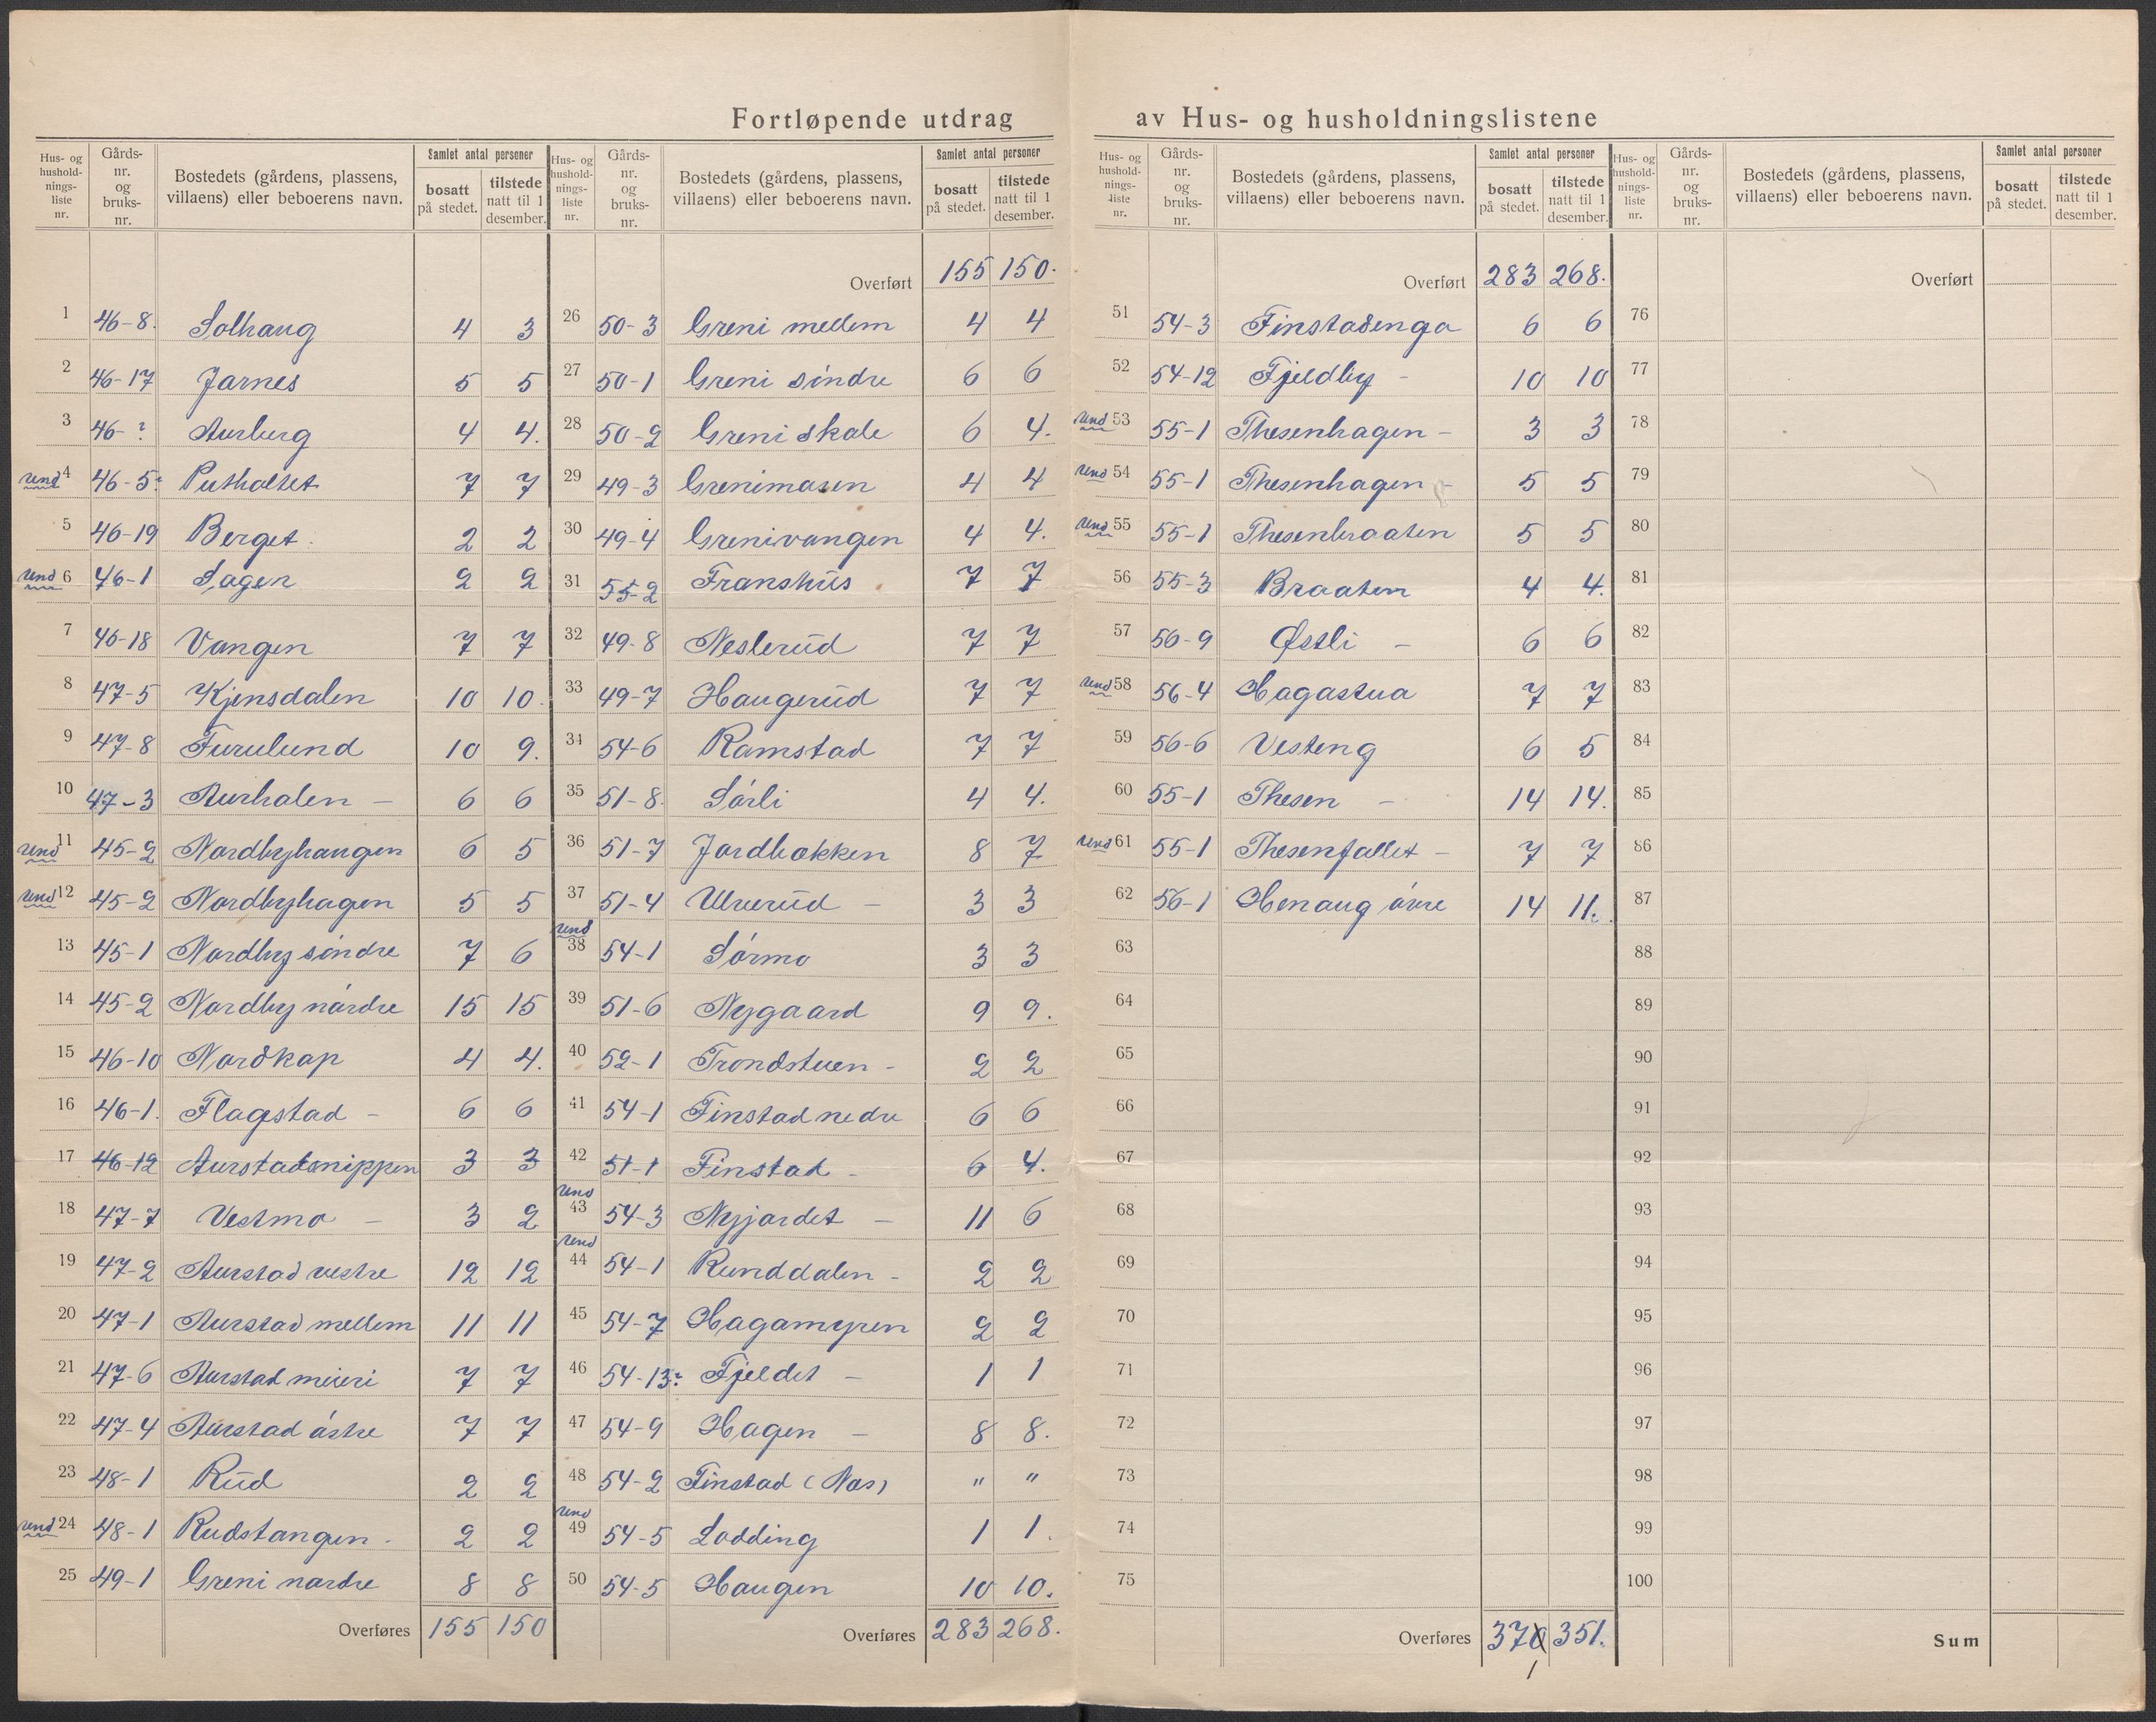 Fortløpende utdrag av Hus- og husholdningslistene
Hus- og husholdnings-liste nr. Gårds-nr. og bruks-nr. Bostedets (gårdens, plassens, villaens) eller beboerens navn. Samlet antal personer bosatt på stedet. tilstede natt til 1 desember.
1 46-8. Solhaug 4 3
2 46-17 Jarnes 5 5
3 46-? Aurburg 4 4.
und 4 46-5? Putholtet 7 7
5 46-19 Berget. 2 2
und 6 46-1 Sagen 2 2
7 46-18 Vangen 7 7
8 47-5 Kjensdalen 10 10.
9 47-8 Furulund 10 9.
10 47-3 Aurhalen - 6 6
und 11 45-2 Nordbyhaugen 6 5
und 12 45-2 Nordbyhagen 5 5
13 45-1 Nordby söndre 7 6
14 45-2 Nordby nordre 15 15
15 46-10 Nordkap 4 4.
16 46-1. Flagstad - 6 6
17 46-12 Aurstadsnippen 3 3
18 47-7 Vestmo - 3 2
19 47-2 Aurstad vestre 12 12
20 47-1 Aurstad mellem 11 11
21 47-6 Aurstad meieri 7 7
22 47-4 Aurstad östre 7 7
23 48-1 Rud 2 2
und 24 48-1 Rudstangen. 2 2
25 49-1 Greni nordre 8 8
Overføres 155 150
Hus- og husholdnings-liste nr. Gårds-nr. og bruks-nr. Bostedets (gårdens, plassens, villaens) eller beboerens navn. Samlet antal personer bosatt på stedet. tilstede natt til 1 desember.
Overført 155 150.
26 50-3 Greni mellem 4 4
27 50-1 Greni söndre 6 6
28 50-2 Greni skole 6 4.
29 49-3 Grenimosen 4 4
30 49-4 Grenivangen 4 4.
31 55-2 Franshus 7 7
32 49-8 Neslerud 7 7
33 49-7 Haugerud 7 7
34 54-6 Ramstad 7 7
35 51-8. Sörli 4 4.
36 51-7 Jordbakken 8 7
37 51-4 Ulverud - 3 3
und 38 54-1 Sörmo 3 3
39 51-6 Nygaard 9 9.
40 52-1 Trondstuen - 2 2
41 54-1 Finstad nedre 6 6
42 51-1 Finstad - 6 4.
und 43 54-3 Nyjordet - 11 6
und 44 54-1 Runddalen - 2 2
45 54-7 Hagamyren 2 2
46 54-13? Fjeldet - 1 1
47 54-9 Hagen - 8 8.
48 54-2 Finstad (Nos) " "
und 49 54-5 Lodding 1 1.
50 54-5 Haugen 10 10.
Overføres 283 268.
Hus- og husholdnings-liste nr. Gårds-nr. og bruks-nr. Bostedets (gårdens, plassens, villaens) eller beboerens navn. Samlet antal personer bosatt på stedet. tilstede natt til 1 desember.
Overført 283 268.
51 54-3 Finstadenga 6 6
52 54-12 Fjeldby - 10 10
und 53 55-1 Thesenhagen - 3 3
und 54 55-1 Thesenhagen - 5 5
und 55 55-1 Thesenbraaten 5 5
56 55-3 Braaten 4 4.
57 56-9 Østli - 6 6
und 58 56-4 Hagastua 7 7
59 56-6 Vesteng 6 5
60 55-1 Thesen - 14 14.
und 61 55-1 Thesenfallet - 7 7
62 56-1 Henaug övre 14 11.
63
64
65
66
67
68
69
70
71
72
73
74
75
Overføres 370 351.
1
Hus- og husholdnings-liste nr. Gårds-nr. og bruks-nr. Bostedets (gårdens, plassens, villaens) eller beboerens navn. Samlet antal personer bosatt på stedet. tilstede natt til 1 desember.
Overført
76
77
78
79
80
81
82
83
84
85
86
87
88
89
90
91
92
93
94
95
96
97
98
99
100
Sum